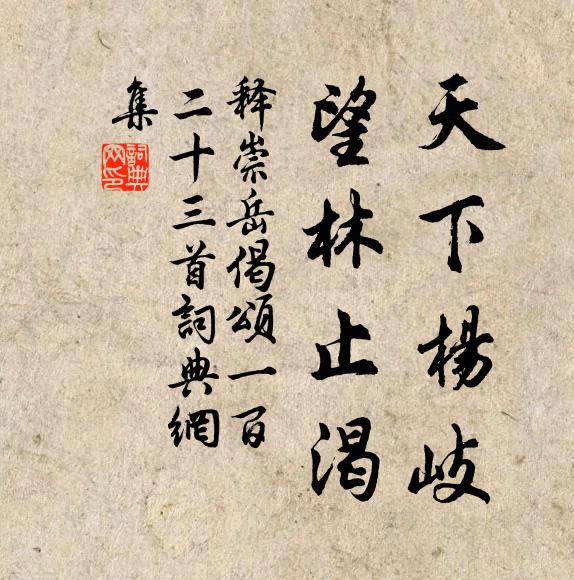 天下楊岐
望林止渴
释崇岳偈頌一百
二十三首詞典網
集
詞典
网印